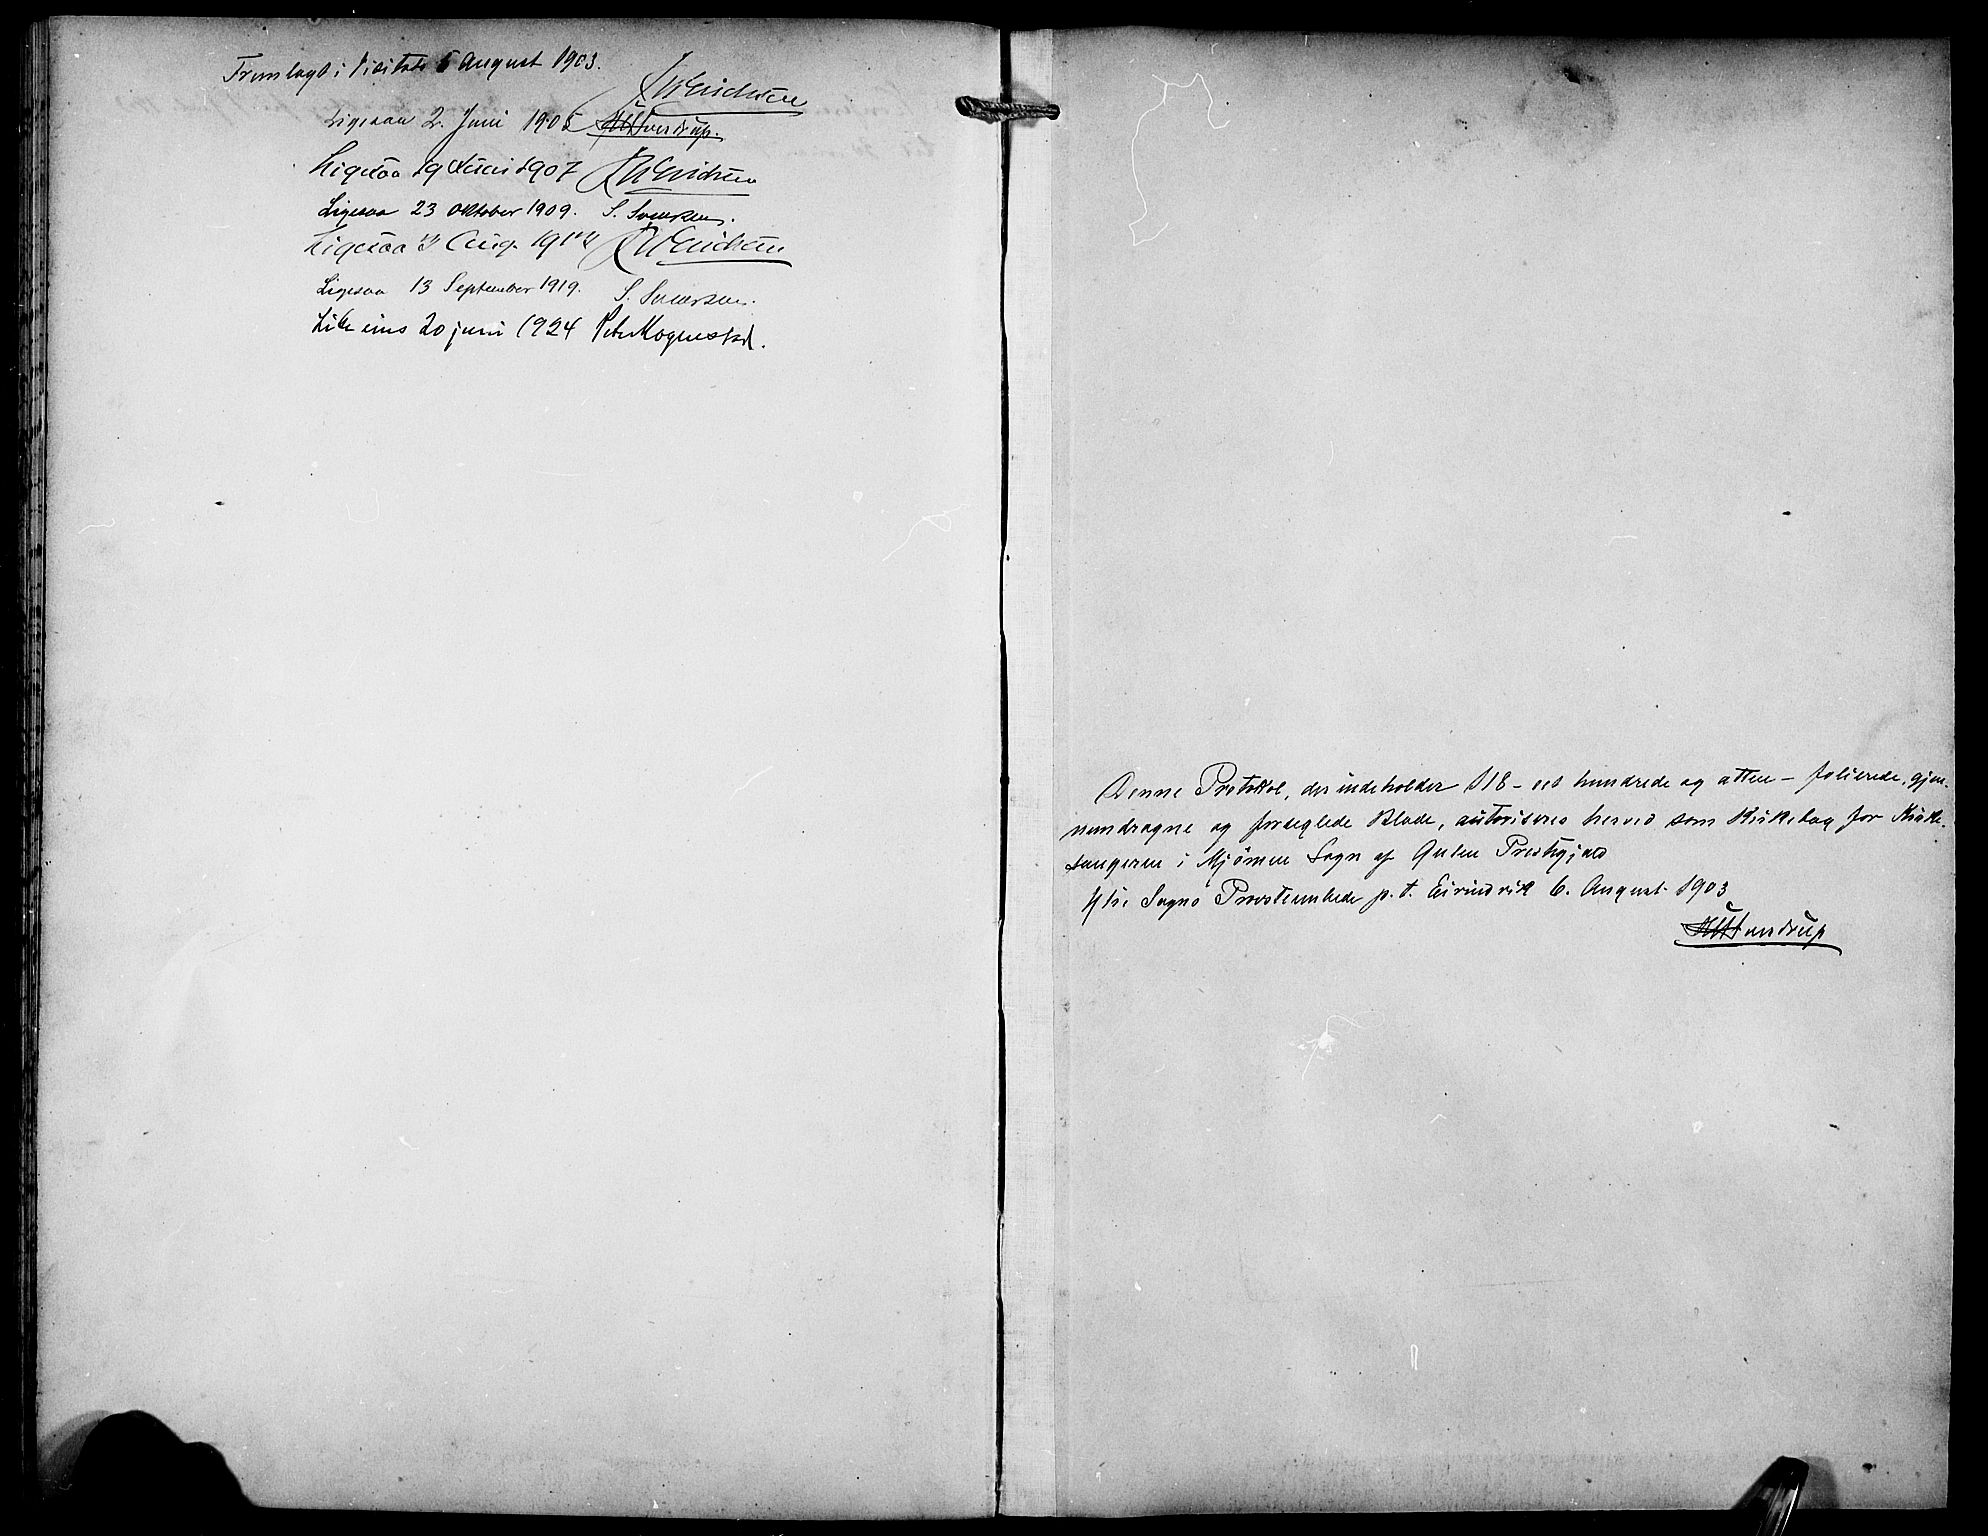 Fremlagt i Visitats 6 August 1903.
JWErichsen
Ligesaa 2. Juni 1905 Sverdrup.
Ligesaa 19 Juni 1907 JWErichsen
Ligesaa 23 Oktober 1909. S. Svensen.
Ligesaa Aug. JWErichsen
Ligesaa 13 September 1919. S. Svensen.
Like eins 20 juni 1924 Peter Hognestad.
Denne Protokol, der indeholder 118 - et hundrede og atten - folierede, gjen-
nemdragne og forseglede Blade, autoriseres herved som Kirkebog for Kirke-
sangeren i Mjömen Sogn af Gulen Prestegjæld
Ytre Sogns Provsteembede p. t. Eivindvik 6. August 1903
Sverdrup